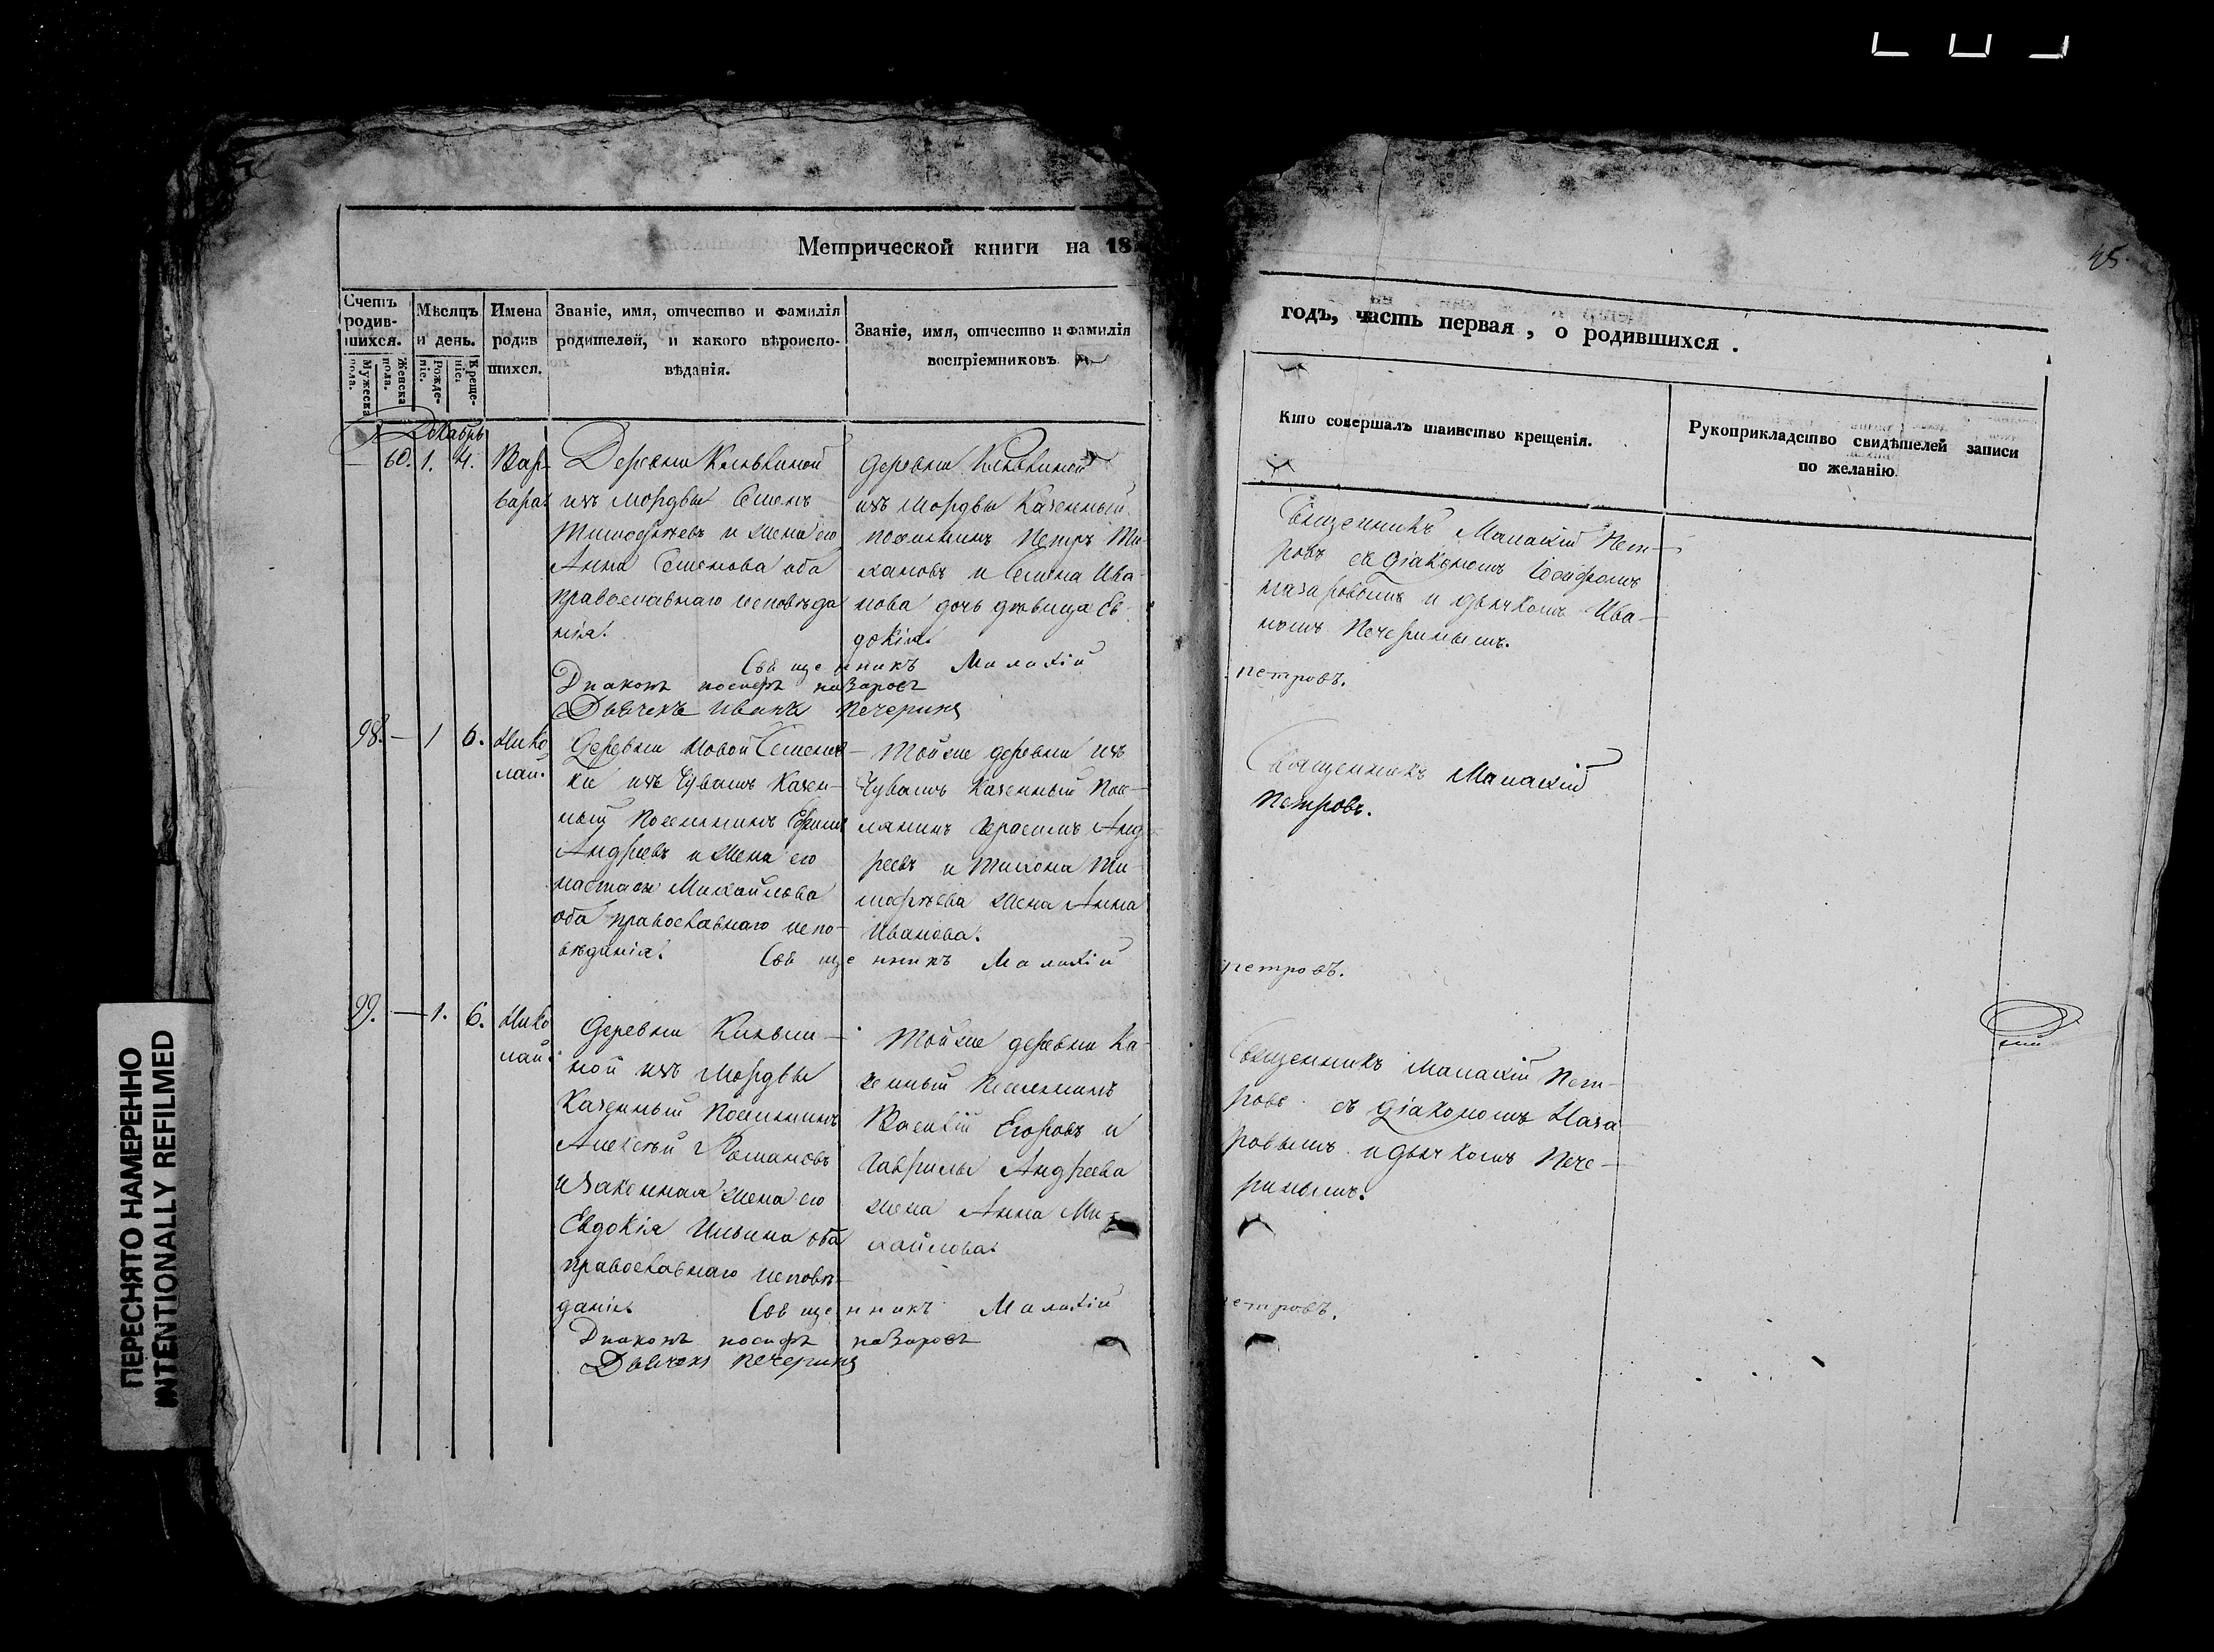 45.
Метрической книги на 18
годъ, часть первая, о родившихся.
Счетъ родив-шихся.
Мужеска пола.
Женска пола.
Мѣсяцъ и день.
Рожде-ніе.
Креще-ніе.
Имена родив шихся.
Званіе, имя, отчество и фамилія
родителей, и какого вѣроиспо-
вѣданія.
Званіе, имя, отчество и фамилія
воспріемниковъ
Кто совершалъ таинство крещенія.
Рукоприкладство свидѣтелей записи
по желанію.
Декабрь
— 60. 1. 4.
Вар-
вара.
Деревни
изъ Мордвы Семенъ
Тимофѣевъ и жена его
Анна Семенова оба
православнаго исповѣда
нія.
деревни
изъ Мордвы Казенный
поселянинъ Петръ Ти
хановъ и Семена Ива-
нова дочь дѣвица Ев-
докія.
Священникъ Малахій Пет-
ровъ съ діакономъ Іосифомъ
Назаровымъ и дьячкомъ Ива-
номъ Печеринымъ.
Священникъ Малахій
петровъ.
Диаконъ иосифъ назаровъ
Дьячекъ Иванъ Печеринъ
98. — 1 6.
Нико
лай.
Деревни Новой Семенов-
ки изъ Чувашъ Казен-
ный Поселянинъ Ефимъ
Андреевъ и жена его
настасья Михайлова
оба православнаго испо-
вѣданія.
Той же деревни изъ
Чувашъ Казенный Посе-
лянинъ Герасимъ Анд-
реевъ и Тихона Ти-
мофѣева жена Анна
Иванова.
Священникъ Малахій
Петровъ.
Священникъ Малахій
петровъ.
99. — 1. 6.
Нико
лай.
Деревни
ной изъ Мордвы
Казенный Поселянинъ
Алексѣй Романовъ
и законная жена его
Евдокія Ильина оба
православнаго исповѣ-
данія.
Той же деревни Ка-
зенный Поселянинъ
Василій Егоровъ и
Гаврилы Андреева
жена Анна Ми-
хайлова.
Священникъ Малахій Пет-
ровъ съ діакономъ Наза-
ровымъ и дьячкомъ Пече-
ринымъ.
Священникъ Малахій
етровъ.
Диаконъ иосифъ назаровъ
Дьячекъ Печеринъ
ПЕРЕСНЯТО НАМЕРЕННО
INTENTIONALLY REFILMED